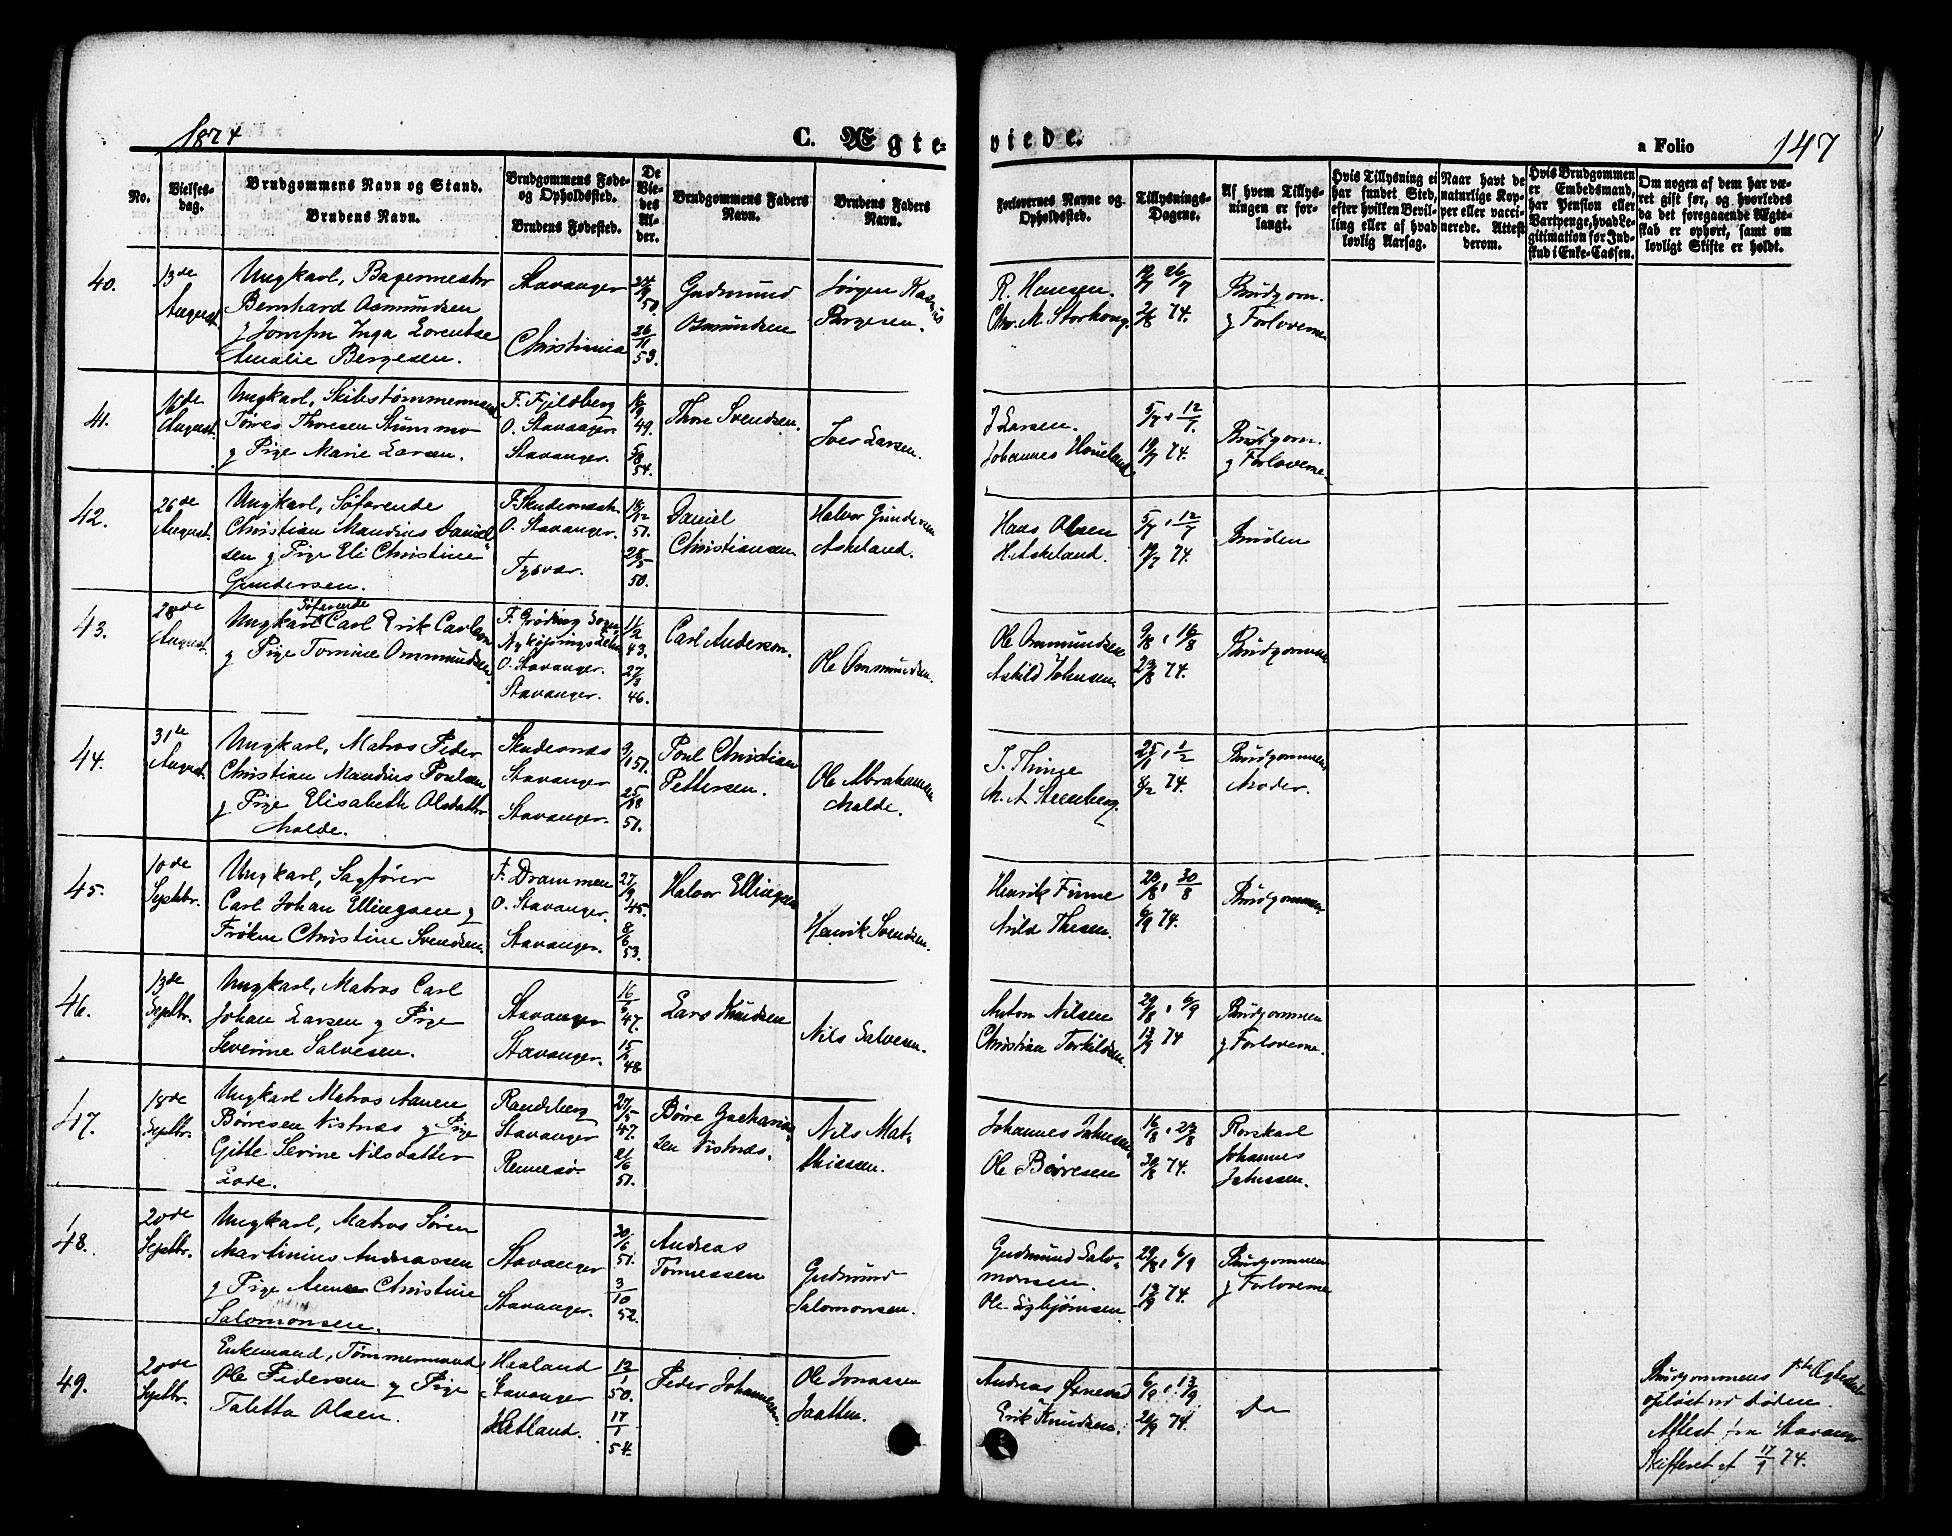 1874
C. Ægte-
viede.
a Folio
147
No.
Vielses-
dag.
Brudgommens Navn og Stand.
Brudens Navn.
Brudgommens Føde-
og Opholdssted.
Brudens Fødested.
De
Vie-
des
Al-
der.
Brudgommens Faders
Navn.
Brudens Faders
Navn.
Forlovernes Navne og
Opholdssted.
Tillysnings-
Dagene.
Af hvem Tillys-
ningen er for-
langt.
Hvis Tillysning ei
har fundet Sted,
efter hvilken Bevil-
ling eller af hvad
lovlig Aarsag.
Naar havt de
naturlige Kop-
per eller vacci-
nerede. Attest
derom.
Hvis Brudgommen
er Embedsmand,
har Pension eller
Vartpenge, hvad Le-
gitimation for Ind-
skud i Enke-Cassen.
Om nogen af dem har væ-
ret gift før, og hvorledes
da det foregaaende Ægte-
skab er ophørt, samt om
lovligt Skifte er holdt.
40.
13de
August.
Ungkarl, Bagermester
Bernhard Osmundsen
g Jomfr Inga Lorentse
Amalie Bergesen.
Stavanger
Christiania
24/9
50.
26/11
53.
Gudmund
Osmundsen
Jørgen
Bergesen.
R. Hansen.
Chr. M. Storhoug.
19/7 26/7
2/8 74.
Brudgom.
g Forloverne
41.
16de
August.
Ungkarl, Skibstømmermand
Tøres Thoresen Stummo
g Pige Marie Larsen.
F. Fjeldberg
O. Stavanger.
Stavanger.
16/9
49.
5/8
54.
Thore Svendsen.
Iver Larsen.
J Larsen.
Johannes Houeland
5/7, 12/7.
19/7 74.
Brudgom.
g Forloverne
42.
26de
August.
Ungkarl, Søfarende
Christian Mandius Daniel
sen g Pige Eli Christine
Gundersen.
F. Skudesnæsh.
O. Stavanger.
Tysvær.
19/12
51.
28/5
50.
Daniel
Christiansen.
Halvor Gundersen
Askeland.
Hans Olsen
H. Askeland.
5/7, 12/7
19/7 74.
Bruden
43.
28de
August.
Søfarende
Ungkarl Carl Erik Carlsen
g Pige Tomine Ommundsen.
F. Grøding Sogn
Nykjøpings Lehn
O. Stavanger.
Stavanger.
11/2
43.
27/3
46.
Carl Anderson.
Ole Ommundsen.
Ole Ommundsen
Askild Johnsen.
9/8, 16/8
23/8 74.
Brudgommen
44.
31te
August.
Ungkarl, Matros Peder
Christian Mandius Poulsen
g Pige Elisabeth Olsdatter
Malde.
Skudesnæs
Stavanger
Stavanger.
9/1 51.
25/
51.
Poul Christian
Pettersen.
Ole Abrahamsen
Malde.
T. Thime
M. A. Steenberg.
25/1, 1/2
8/2 74.
Brudgommens
Moder.
45.
10de
Septbr.
Ungkarl, Sagfører
Carl Johan Ellingsen g
Frøken Christine Svendsen.
F. Drammen
O. Stavanger.
Stavanger.
27/9
45.
8/6
53.
Halvor Ellingsen
Henrik Svendsen.
Henrik Finne
Nils Thesen.
23/8, 30/8
6/9 74.
Brudgommen
46.
13de
Septbr.
Ungkarl, Matros Carl
Johan Larsen g Pige
Severine Salvesen.
Stavanger
Stavanger.
16/
47.
15/
48
Lars Knudsen
Nils Salvesen.
Anton Nilsen
Christian Torkildsen.
29/8, 6/9
13/9 74
Brudgommen
g Forloverne.
47.
18de
Septbr.
Ungkarl Matros Aanen
Børresen Vistnæs g Pige
Gitte Serine Nilsdatter
Lode.
Randeberg
Stavanger
Rennesø.
27/5
47.
21/6
51.
Børre Zacharia-
sen Vistnæs.
Nils Mat-
thissen.
Johannes Johnsen
Ole Børresen
16/8, 23/8
30/8 74.
Rorskarl
Johannes
Johnsen.
48.
20de
Septbr.
Ungkarl, Matros Søren
Martinius Andreassen
g Pige Anne Christine
Salomonsen.
Stavanger
Stavanger.
30/6
51.
3/10
52.
Andreas
Tønnessen
Gudmund
Salomonsen.
Gudmund Salo-
monsen
Ole Sigbjørnsen.
29/8, 6/9
13/9 74.
Brudgommen
g Forloverne
49.
20de
Septbr.
Enkemand, Tømmermand
Ole Pedersen g Pige
Taletta Olsen.
Haaland
Stavanger
Hetland.
12/1
50.
17/1
54.
Peder Johannesen.
Ole Jonassen
Jaatten.
Andreas
Erik Knudsen.
6/9, 13/9
20/9 74.
Do
Brudgommens 1ste Ægteskab
opløst ved Døden.
Attest fra Stavanger
Skifteret af 17/9 74.